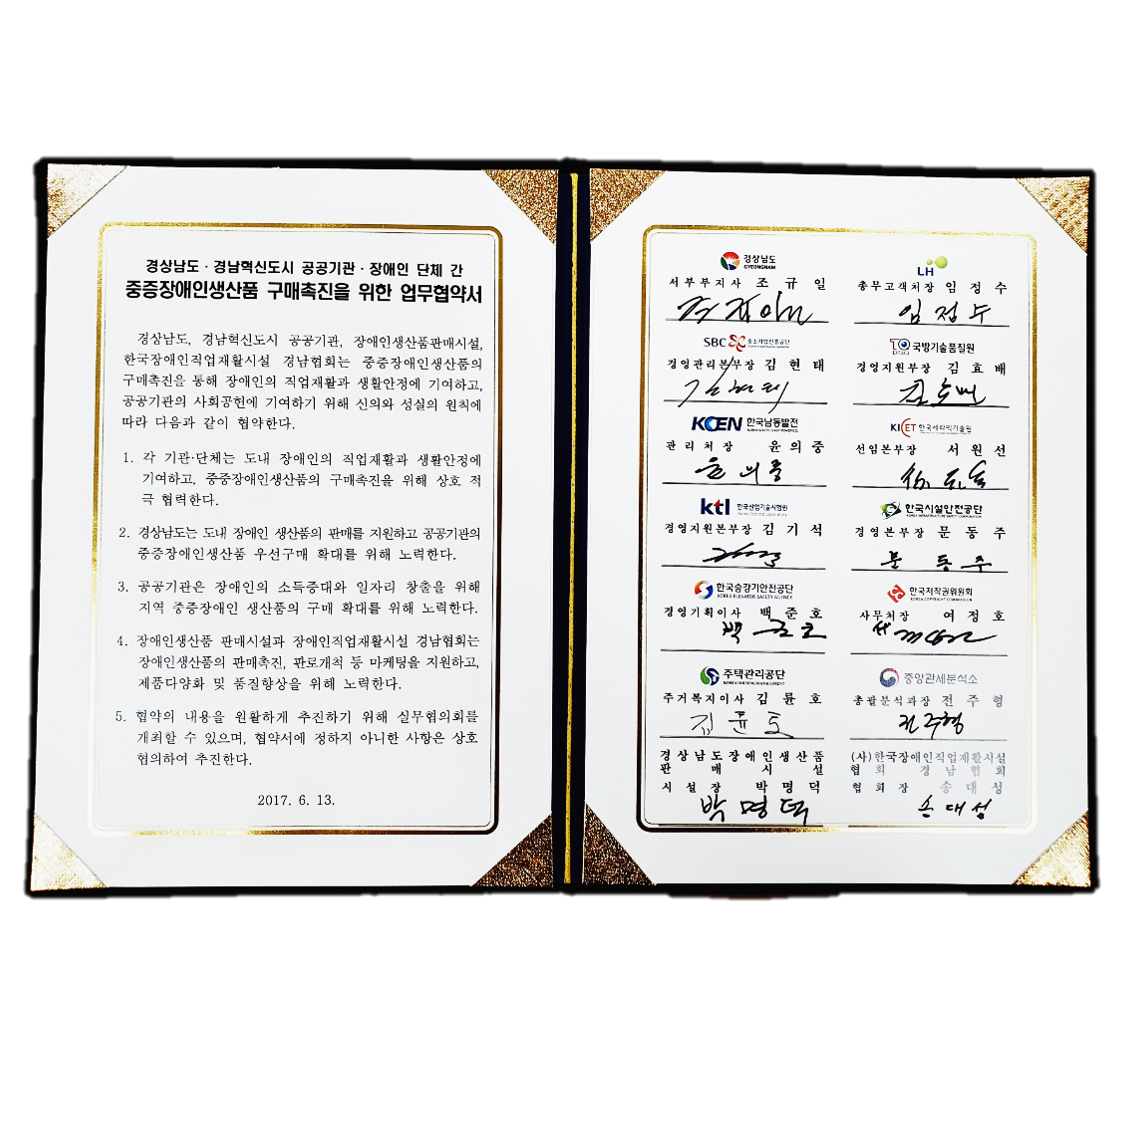 경상남도 · 경남혁신도시 공공기관 · 장애인 단체 간
중증장애인생산품 구매촉진을 위한 업무협약서
경상남도, 경남혁신도시 공공기관, 장애인생산품판매시설,
한국장애인직업재활시설 경남협회는 중증장애인생산품의
구매촉진을 통해 장애인의 직업재활과 생활안정에 기여하고,
공공기관의 사회공헌에 기여하기 위해 신의와 성실의 원칙에
따라 다음과 같이 협약한다.
1. 각 기관·단체는 도내 장애인의 직업재활과 생활안정에
기여하고, 중증장애인생산품의 구매촉진을 위해 상호 적
극 협력한다.
2. 경상남도는 도내 장애인 생산품의 판매를 지원하고 공공기관의
중증장애인생산품 우선구매 확대를 위해 노력한다.
3. 공공기관은 장애인의 소득증대와 일자리 창출을 위해
지역 중증장애인 생산품의 구매 확대를 위해 노력한다.
4. 장애인생산품 판매시설과 장애인직업재활시설 경남협회는
장애인생산품의 판매촉진, 판로개척 등 마케팅을 지원하고,
제품다양화 및 품질향상을 위해 노력한다.
5. 협약의 내용을 원활하게 추진하기 위해 실무협의회를
개최할 수 있으며, 협약서에 정하지 아니한 사항은 상호
협의하여 추진한다.
2017. 6. 13.
경상남도
GYEONGNAM
서부부지사 조규일
LH
총무고객처장 임정수
임정수
SBC 중소기업진흥공단
경영관리본부장 김현태
김현태
국방기술품질원
경영지원부장 김효배
KOEN 한국남동발전
관리처장 윤의중
윤의중
KICET 한국세라믹기술원
선임본부장 서원선
ktl 한국산업기술시험원
경영지원본부장 김기석
한국시설안전공단
KOREA INFRASTRUCTURE SAFETY CORPORATION
경영본부장 문동주
문동주
한국승강기안전공단
KOREA ELEVATOR SAFETY AGENCY
경영기획이사 백준호
백준호
한국저작권위원회
KOREA COPYRIGHT COMMISSION
사무처장 여정호
주택관리공단
주거복지이사 김륜호
김륜호
중앙관세분석소
총괄분석과장 전주형
전주형
경상남도장애인생산품
판매시설
시설장 박명덕
박명덕
(사)한국장애인직업재활시설
협회 경남협회
협회장 송대성
송대성